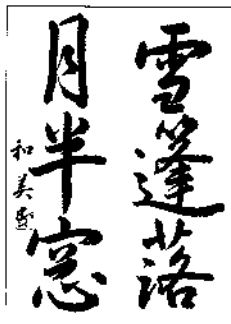 雪篷落
月半窓
和美